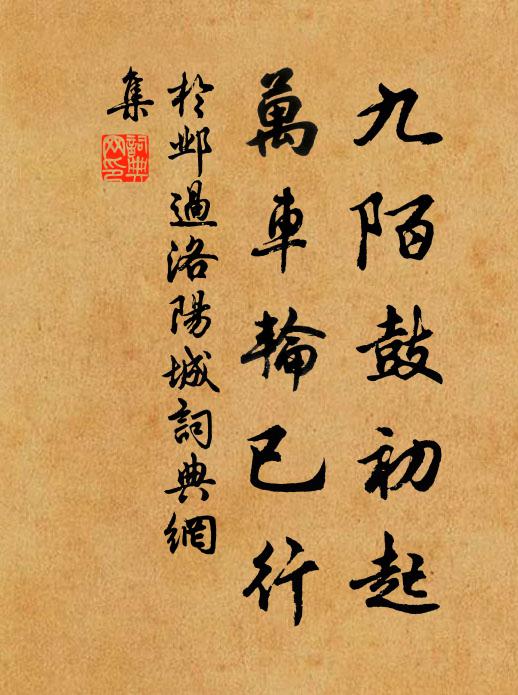 九陌鼓初起
萬車輪已行
於鄴過洛陽城詞典網
集
詞典
网印